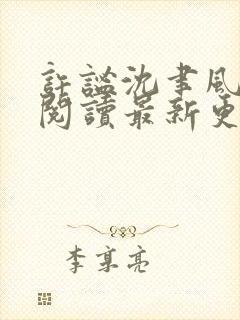 許謐沈聿風
閱讀最新更
李享亮